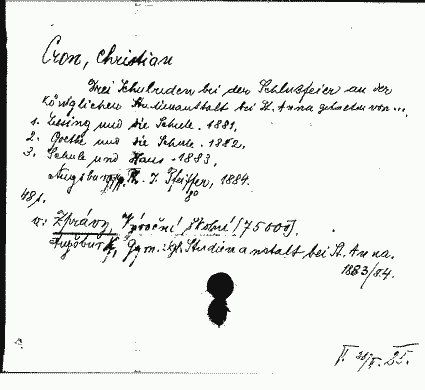 Cron, Christian
Drei Schulreden bei der Schlußfeier an der
Königlichen Studienanstalt bei St. Anna gehalten von ...
1. Lessing und die Schule. 1881.
2. Goethe und die Schule. 1882.
3. Schule und Haus. 1883.
Augsburg, J. Pfeiffer, 1884.
48 s.
v: Zprávy, Výroční školní (75000).
Augsburg, Gym.: kgl. Studienanstalt bei St. Anna.
1883/84.